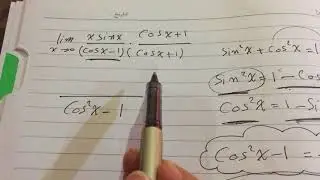 lim x→0 x sinx / (cosx−1) · cosx+1 / (cosx+1)
sin²x + cos²x =
sin²x = 1 − cos
cos²x = 1 − si
cos²x − 1
cos²x − 1 = −